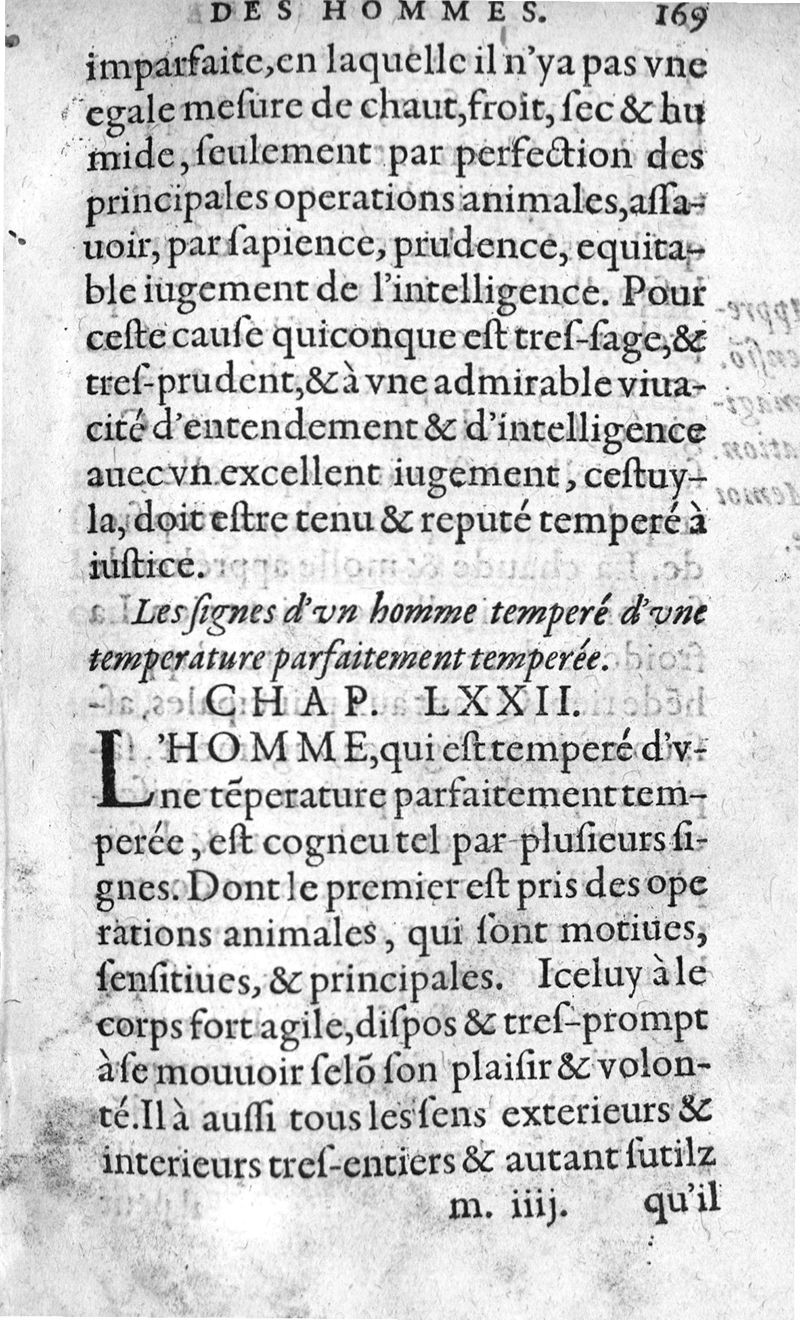 DES HOMMES. 169
imparfaite,en laquelle il n'ya pas vne
egale meſure de chaut,froit, ſec & hu
mide, ſeulement par perfection des
principales operations animales,aſſa-
uoir, par ſapience, prudence, equita-
ble iugement de l'intelligence. Pour
ceſte cauſe quiconque eſt treſ-ſage,&
treſ-prudent,& à vne admirable viua-
cité d'entendement & d'intelligence
auec vn excellent iugement, ceſtuy-
la, doit eſtre tenu & reputé temperé à
iuſtice.
Les ſignes d'vn homme temperé d'vne
temperature parfaitement temperée.
CHAP. LXXII.
L'HOMME,qui eſt temperé d'v-
ne tēperature parfaitement tem-
perée, eſt cogneu tel par pluſieurs ſi-
gnes. Dont le premier eſt pris des ope
rations animales, qui ſont motiues,
ſenſitiues, & principales. Iceluy à le
corps fort agile,diſpos & treſ-prompt
à ſe mouuoir ſelō ſon plaiſir & volon-
té.Il à auſſi tous les ſens exterieurs &
interieurs treſ-entiers & autant ſutilz
m. iiij. qu'il